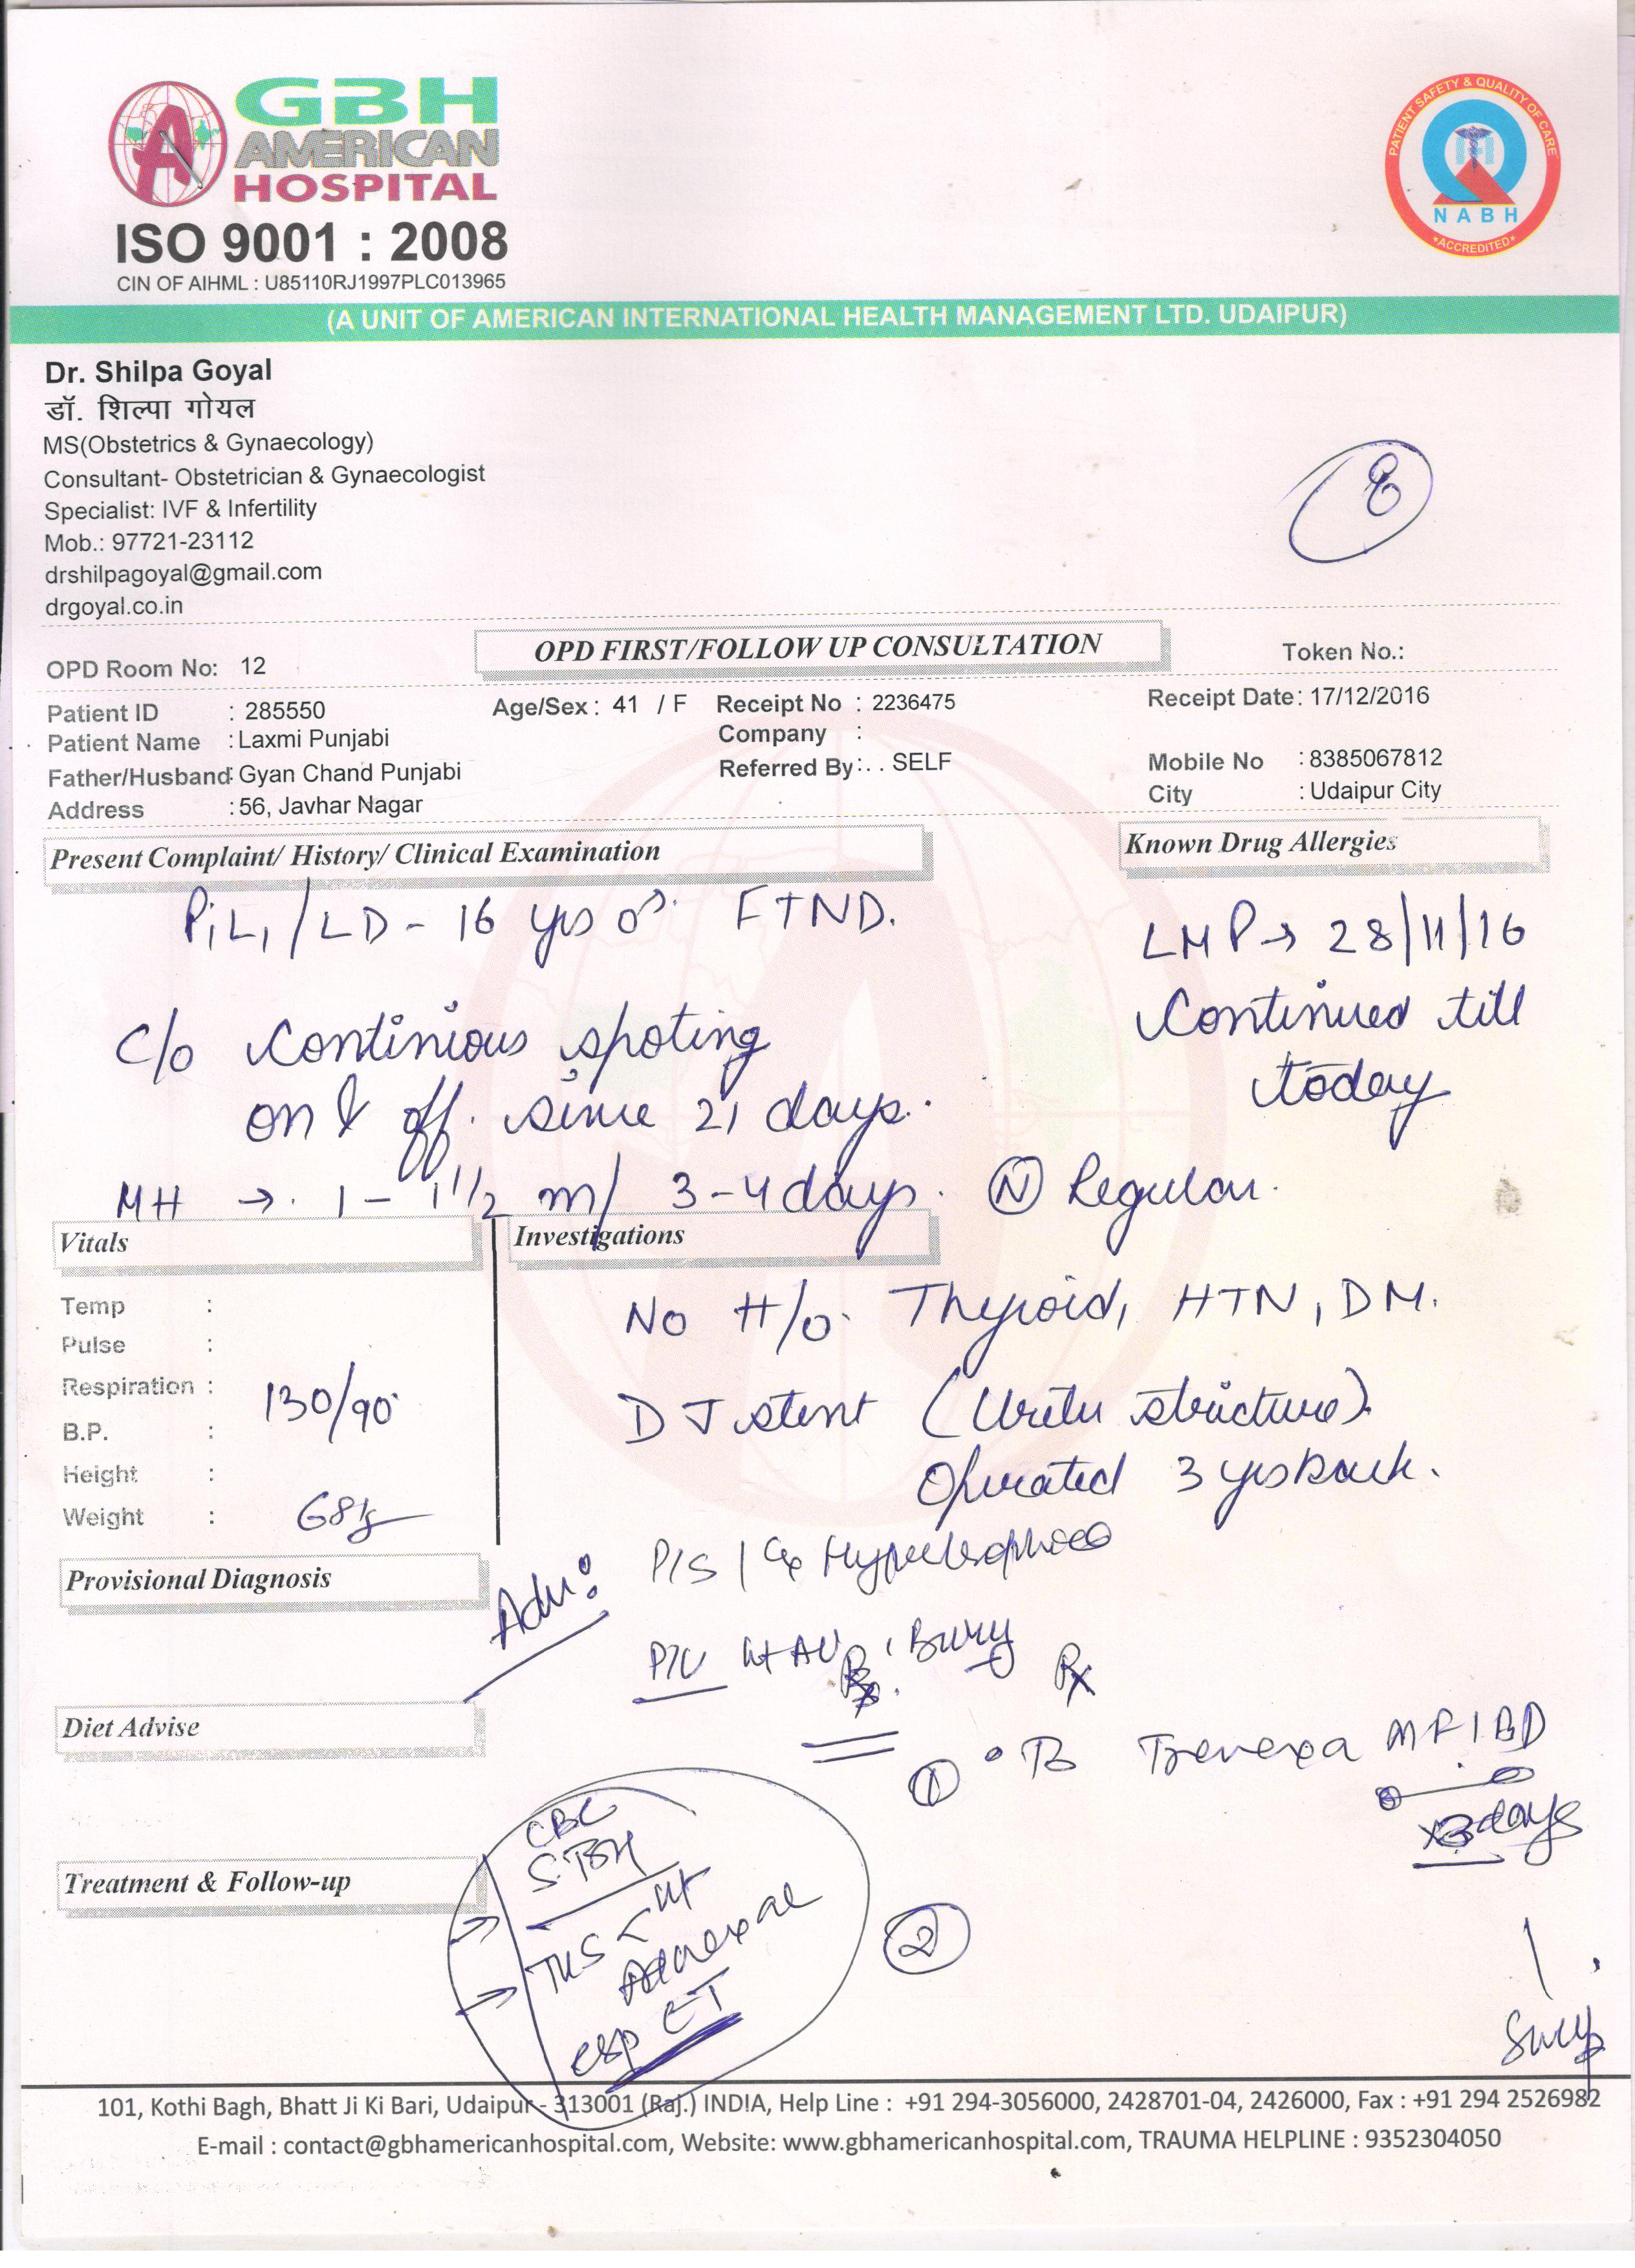 GBH
AMERICAN
HOSPITAL
ISO 9001 : 2008
CIN OF AIHML : U85110RJ1997PLC013965
PATIENT SAFETY & QUALITY OF CARE
NABH
*ACCREDITED*
(A UNIT OF AMERICAN INTERNATIONAL HEALTH MANAGEMENT LTD. UDAIPUR)
Dr. Shilpa Goyal
डॉ. शिल्पा गोयल
MS(Obstetrics & Gynaecology)
Consultant- Obstetrician & Gynaecologist
Specialist: IVF & Infertility
Mob.: 97721-23112
drshilpagoyal@gmail.com
drgoyal.co.in
OPD Room No: 12 OPD FIRST/FOLLOW UP CONSULTATION Token No.:
Patient ID : 285550 Age/Sex : 41 / F Receipt No : 2236475 Receipt Date : 17/12/2016
Patient Name : Laxmi Punjabi Company :
Father/Husband : Gyan Chand Punjabi Referred By : . . SELF Mobile No : 8385067812
Address : 56, Javhar Nagar City : Udaipur City
Present Complaint/ History/ Clinical Examination Known Drug Allergies
P1L1/LD - 16 yrs FTND.
LMP → 28/11/16
Continued till
today
c/o Continious spoting
on & off. since 21 days.
MH → 1 - 1 1/2 m/ 3-4 days. (N) Regular.
Vitals Investigations
Temp :
Pulse :
Respiration :
B.P. : 130/90
Height :
Weight : 68kg
No H/o Thyroid, HTN, DM.
DJ stent (Uriter structure).
Operated 3 yrs back.
Provisional Diagnosis
Adv: P/S / Cx Hypertrophied
P/V Ut AV
Rx
Diet Advise
① Tb Trenexa MF 1 BD
x3 days
Treatment & Follow-up
CBC
S. TSH
TVS Ut
Adnexae
esp ET
②
101, Kothi Bagh, Bhatt Ji Ki Bari, Udaipur - 313001 (Raj.) INDIA, Help Line : +91 294-3056000, 2428701-04, 2426000, Fax : +91 294 2526982
E-mail : contact@gbhamericanhospital.com, Website: www.gbhamericanhospital.com, TRAUMA HELPLINE : 9352304050